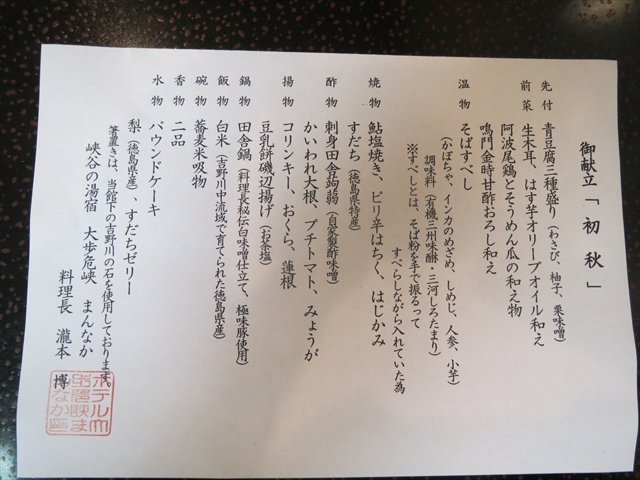 御献立「初秋」
先付 青豆腐三種盛り（わさび、柚子、粟味噌）
前菜 生木耳、はす芋オリーブオイル和え
阿波尾鶏とそうめん瓜の和え物
鳴門金時甘酢おろし和え
温物 そばすべし
（かぼちゃ、インカのめざめ、しめじ、人参、小芋）
調味料（有機三州味醂・三河しろたまり）
※すべしとは、そば粉を手で振るって
すべらしながら入れていた為
焼物 鮎塩焼き、ピリ辛はちく、はじかみ
すだち（徳島県特産）
酢物 刺身田舎蒟蒻（自家製酢味噌）
かいわれ大根、プチトマト、みょうが
揚物 コリンキー、おくら、蓮根
豆乳餅磯辺揚げ（お茶塩）
鍋物 田舎鍋（料理長秘伝白味噌仕立て、極味豚使用）
飯物 白米（吉野川中流域で育てられた徳島県産）
碗物 蕎麦米吸物
香物 二品
水物 パウンドケーキ
梨（徳島県産）、すだちゼリー
箸置きは、当館下の吉野川の石を使用しております。
峡谷の湯宿 大歩危峡 まんなか
料理長 瀧本 博
ホテル大
歩危峡ま
んなか